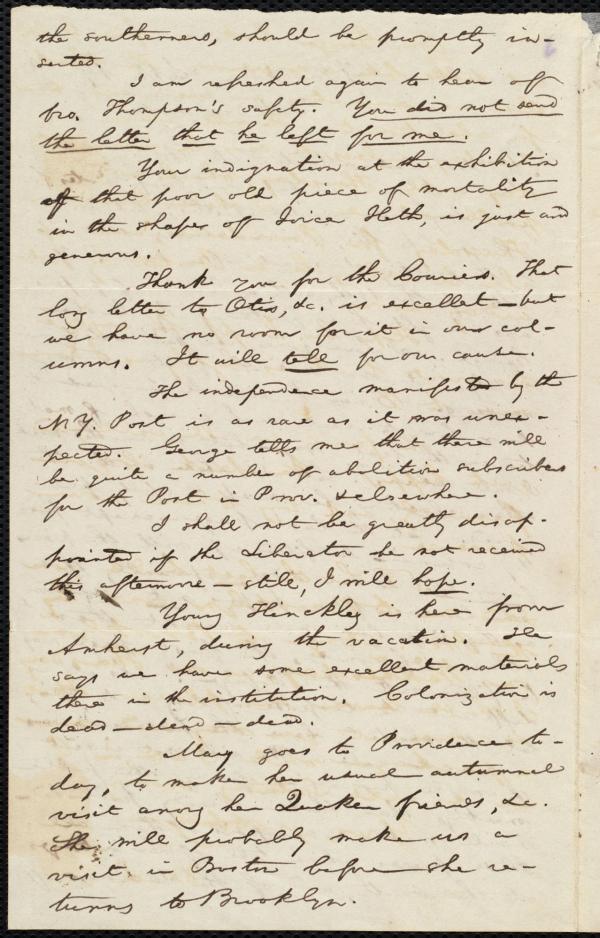 the southerners, should be promptly in-
serted.
I am refreshed again to hear of
bro. Thompson's safety. You did not send
the letter that he left for me.
Your indignation at the exhibition
of that poor old piece of mortality
in the shape of Joice Heth, is just and
generous.
Thank you for the Couriers. That
long letter to Otis, &c. is excellent — but
we have no room for it in our col-
umns. It will tell for our cause.
The independence manifested by the
N.Y. Post is as rare as it was unex-
pected. George tells me that there will
be quite a number of abolition subscribers
for the Post in Prov. & elsewhere.
I shall not be greatly disap-
pointed if the Liberator be not received
this afternoon — still, I will hope.
Young Hinckley is here from
Amherst, during the vacation. He
says we have some excellent materials
there in the institution. Colonization is
dead — dead — dead.
Mary goes to Providence to-
day, to make her usual autumnal
visit among her Quaker friends, &c.
She will probably make us a
visit in Boston before she re-
turns to Brooklyn.